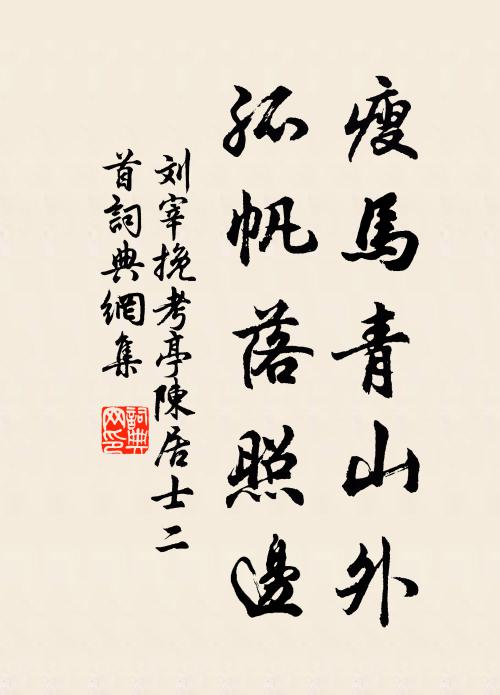 瘦馬青山外
孤帆落照邊
刘宰挽考亭陳居士二
首詞典網集
詞典
网印